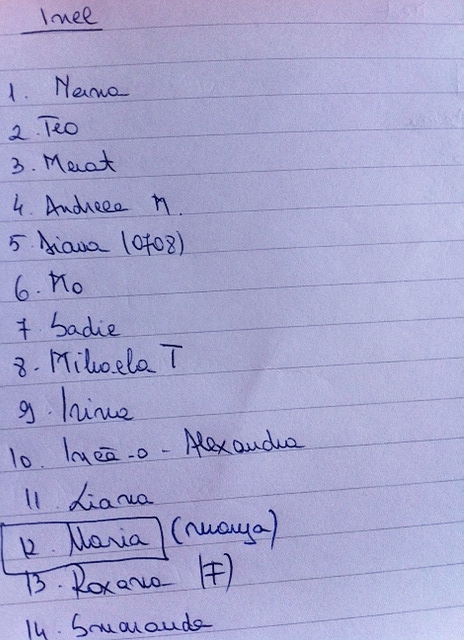 Inel
1. Nema
2. Teo
3. Murat
4. Andreea M.
5 Diana (0708)
6. Mo
7 Sadie
8. Mihaela T
9. Irina
10. Încă-o - Alexandra
11 Liana
12. Maria (nuanța)
13. Roxana (F)
14. Smaranda